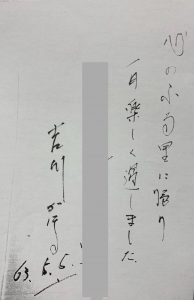 心のふる里に帰り
一日楽しく過しました
吉川
63.5.5.